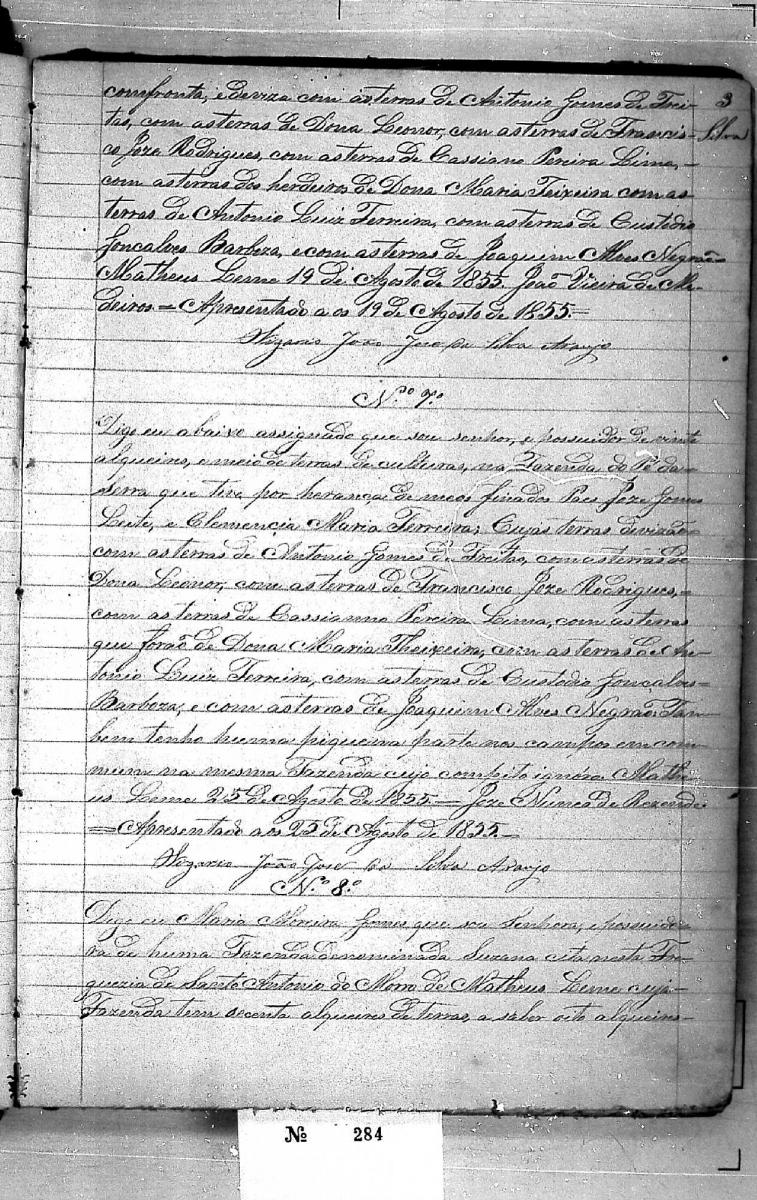 3
Silva
comfronta, e deviza com as terras de Antonio Gomes de Frei-
tas, com as terras de Dona Leonor, com as terras de Francis-
co Joze Rodrigues, com as terras de Cassiano Pereira Lima,-
com as terras dos herdeiros de Dona Maria Teixeira com as
terras de Antonio Luiz Ferreira, com as terras de Custodio
Goncalves Barboza, e com as terras de Joaquim Alves Negraõ
Matheus Leme 19 de Agosto de 1855. João Vieira de Me-
deiros = Apresentado a os 19 de Agosto de 1855.=
Vigario João Jose da Silva Araujo
N.ro 7.o
Digo eu abaixo assignado que sou senhor, e possuidor de vinte
alqueires, e meio de terras de culturas, na Fazenda do Pé da
Serra que tive por herança de meos finados Paes Joze Gomes
Leite, e Clemencia Maria Ferreira; Cujas terras divizaõ
com as terras de Antonio Gomes de Freitas, com as terras de
Dona Leonor, com as terras de Francisco Joze Rodrigues,=
com as terras de Cassianno Pereira Lima, com as terras
que foraõ de Dona Maria Theixeira, com as terras de An-
tonio Luiz Ferreira, com as terras de Custodio Gonçalves-
Barboza, e com as terras de Joaquim Alves Negraõ. Tam
bem tenho huma piquena parte nos campos em com
mum na mesma Fazenda cujo computo ignóro. Mathe
us Leme 25 de Agosto de 1855.= Joze Nunes de Rezende
= Apresentado aos 25 de Agosto de 1855.=
Vigario João José da Silva Araujo
N.o 8.o
Digo eu Maria Moreira Gomes que sou Senhora, e possuido-
ra de huma Fazenda denominada Suzana cita nesta Fre-
guezia de Santo Antonio do Morro de Matheus Leme cuja-
Fazenda tem secenta alqueires de terras, a saber oito alqueires-
No 284